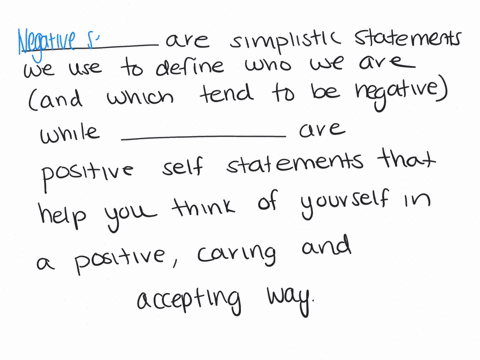 Negative s
are simplistic statements
we use to define who we are
(and which tend to be negative)
while __________ are
positive self statements that
help you think of yourself in
a positive, caring and
accepting way.